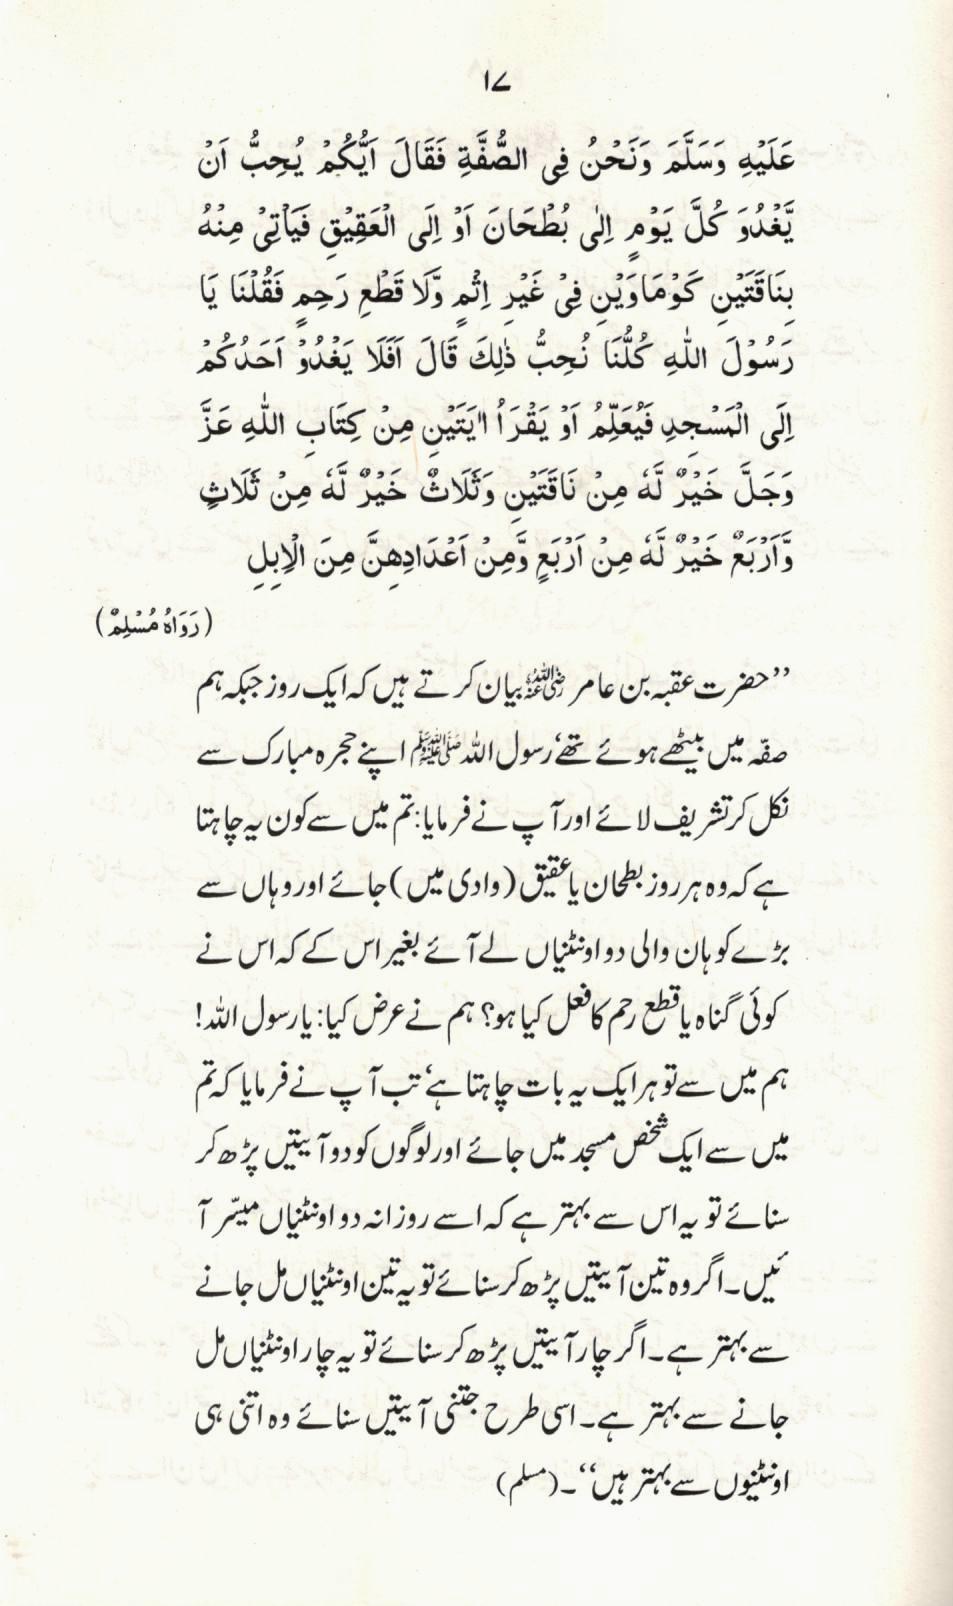 ۱۷
عَلَيْهِ وَسَلَّمَ وَنَحْنُ فِى الصُّفَّةِ فَقَالَ اَيُّكُمْ يُحِبُّ اَنْ
يَّغْدُوَ كُلَّ يَوْمٍ اِلٰى بُطْحَانَ اَوْ اِلَى الْعَقِيْقِ فَيَاْتِىْ مِنْهُ
بِنَاقَتَيْنِ كَوْمَاوَيْنِ فِىْ غَيْرِ اِثْمٍ وَّلَا قَطْعِ رَحِمٍ فَقُلْنَا يَا
رَسُوْلَ اللّٰهِ كُلُّنَا نُحِبُّ ذٰلِكَ قَالَ اَفَلَا يَغْدُوْ اَحَدُكُمْ
اِلَى الْمَسْجِدِ فَيُعَلِّمُ اَوْ يَقْرَاُ اٰيَتَيْنِ مِنْ كِتَابِ اللّٰهِ عَزَّ
وَجَلَّ خَيْرٌ لَّهٗ مِنْ نَاقَتَيْنِ وَثَلَاثٌ خَيْرٌ لَّهٗ مِنْ ثَلَاثٍ
وَّاَرْبَعٌ خَيْرٌ لَّهٗ مِنْ اَرْبَعٍ وَّمِنْ اَعْدَادِهِنَّ مِنَ الْاِبِلِ
(رَوَاهُ مُسْلِمٌ)
’’حضرت عقبہ بن عامر رضی اللہ عنہ بیان کرتے ہیں کہ ایک روز جبکہ ہم
صفّہ میں بیٹھے ہوئے تھے‘ رسول اللہ صلی اللہ علیہ وسلم اپنے حجرہ مبارک سے
نکل کر تشریف لائے اور آپ نے فرمایا: تم میں سے کون یہ چاہتا
ہے کہ وہ ہر روز بطحان یا عقیق (وادی میں) جائے اور وہاں سے
بڑے کوہان والی دو اونٹنیاں لے آئے بغیر اس کے کہ اس نے
کوئی گناہ یا قطع رحم کا فعل کیا ہو؟ ہم نے عرض کیا: یا رسول اللہ!
ہم میں سے تو ہر ایک یہ بات چاہتا ہے‘ تب آپ نے فرمایا کہ تم
میں سے ایک شخص مسجد میں جائے اور لوگوں کو دو آیتیں پڑھ کر
سنائے تو یہ اس سے بہتر ہے کہ اسے روزانہ دو اونٹنیاں میسّر آ
ئیں۔ اگر وہ تین آیتیں پڑھ کر سنائے تو یہ تین اونٹنیاں مل جانے
سے بہتر ہے۔ اگر چار آیتیں پڑھ کر سنائے تو یہ چار اونٹنیاں مل
جانے سے بہتر ہے۔ اسی طرح جتنی آیتیں سنائے وہ اتنی ہی
اونٹنیوں سے بہتر ہیں‘‘۔ (مسلم)